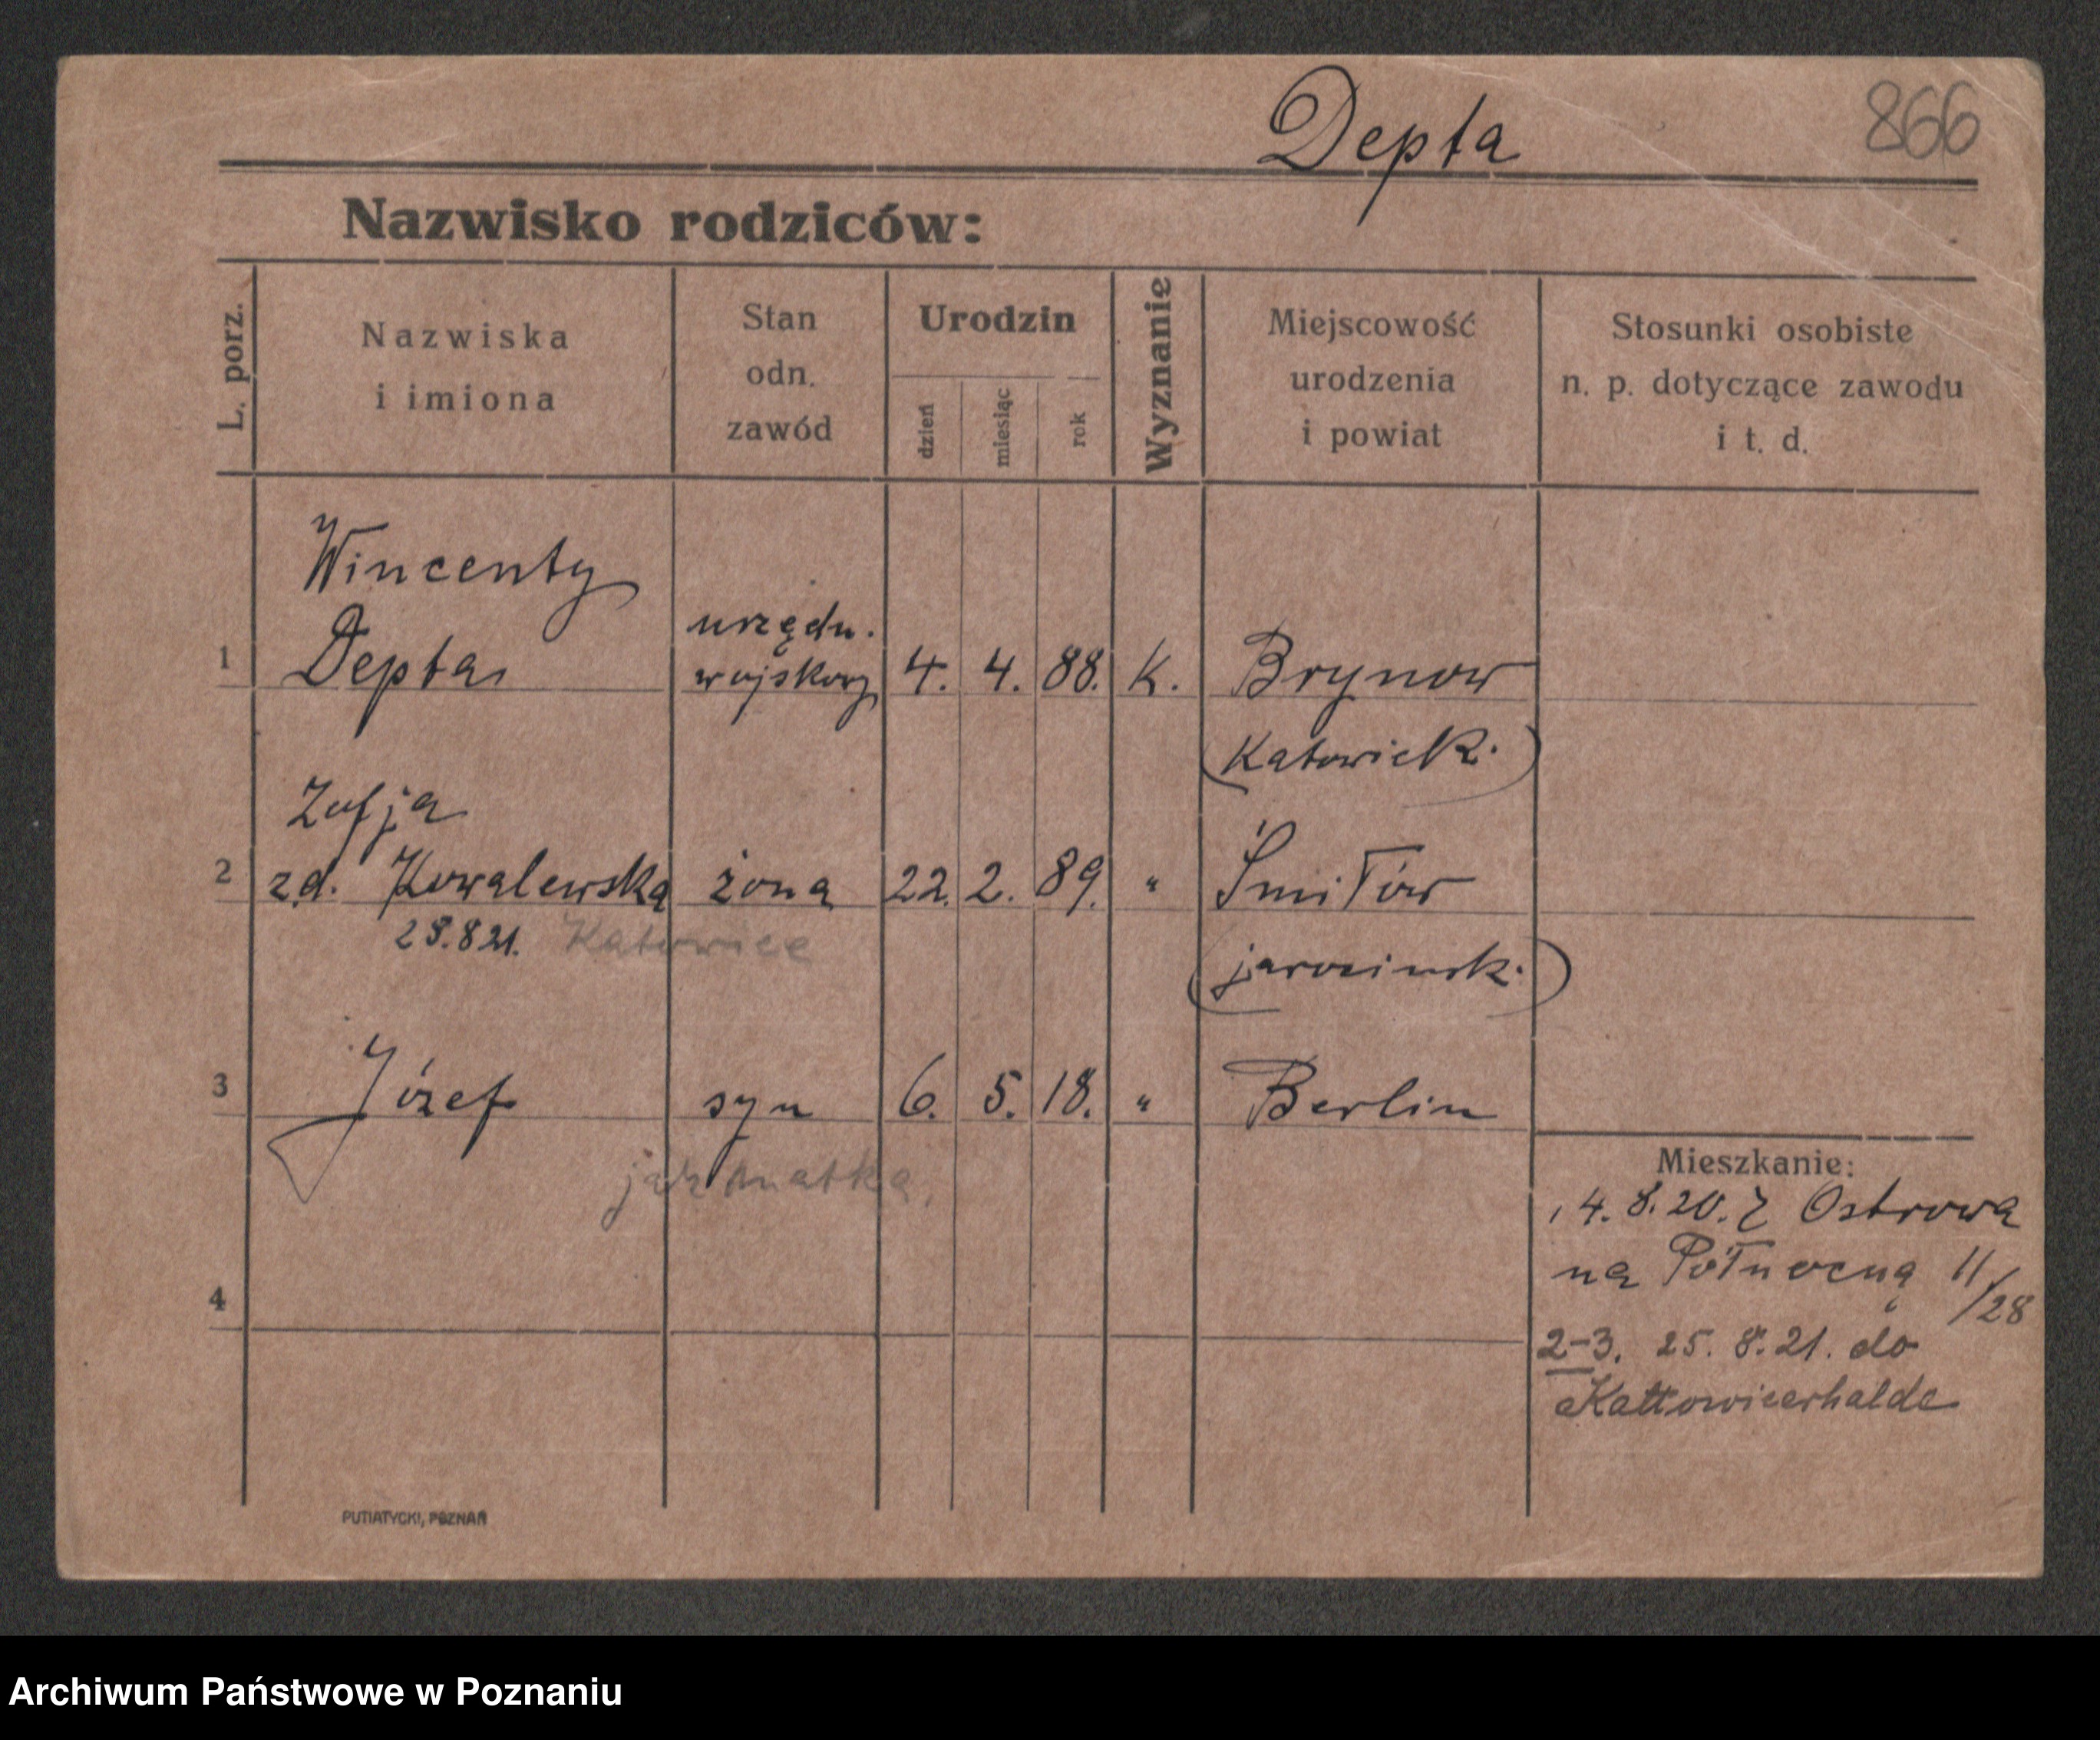 Depta
866
Nazwisko rodziców:
L. porz.
Nazwiska
i imiona
Stan
odn.
zawód
Urodzin
dzień
miesiąc
rok
Wyznanie
Miejscowość
urodzenia
i powiat
Stosunki osobiste
n. p. dotyczące zawodu
i t. d.
Wincenty
1 Depta urzędn. wojskowy 4. 4. 88. K. Brynow
(Katowick.)
Zofja
2 z d. Kowalewska żona 22. 2. 89. " Śmiłów
23.8 21. Katowice
(jarocinsk.)
3 Józef syn 6. 5. 18. " Berlin
jak matka.
4
Mieszkanie:
4. 8. 20. z Ostrowa
na Północną 11/28
2-3. 25. 8. 21. do
Kattowicerhalde
PUTIATYCKI, POZNAŃ
Archiwum Państwowe w Poznaniu